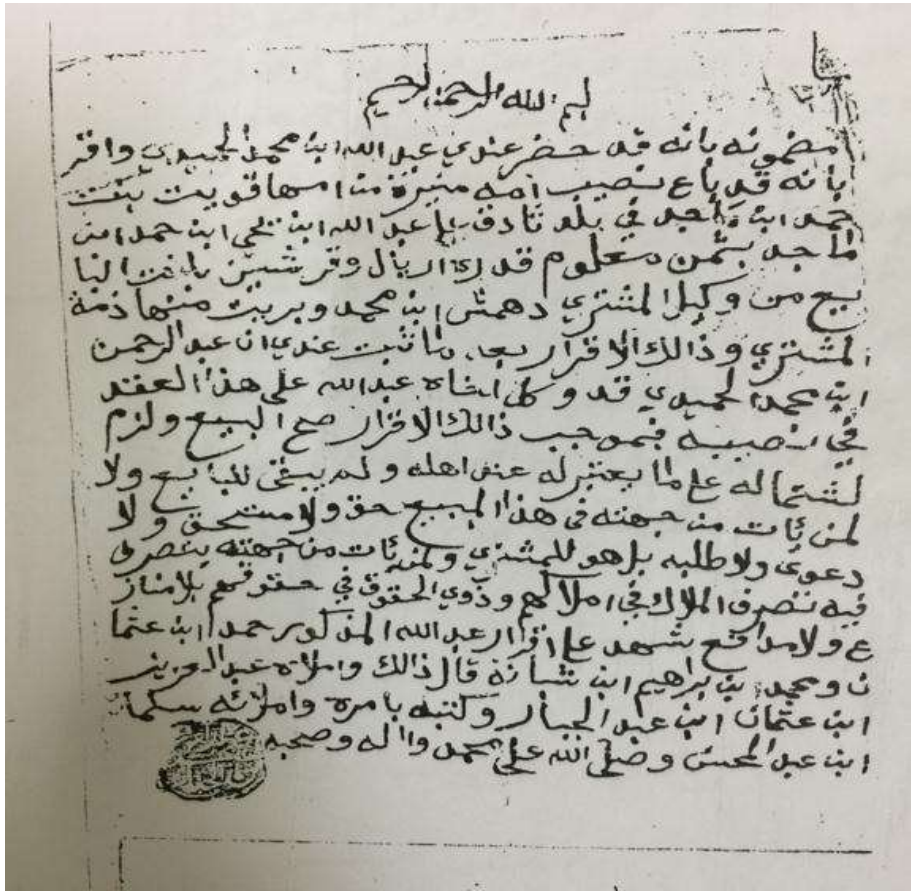 بسم الله الرحمن الرحيم
مضمونه بانه قد حضر عندي عبد الله ابن محمد الحميدي واقر
بانه قد باع نصيب امه منيرة من امها قويت بنت
حمد ابن ماجد في بلد ثادق علي عبد الله ابن يحي ابن حمد ابن
ماجد بثمن معلوم قدره اريال وقرشين بلغت البا
يع من وكيل المشتري دهمش ابن محمد وبريت منها ذمة
المشتري وذالك الاقرار بعد ما ثبت عندي ان عبد الرحمن
ابن محمد الحميدي قد وكل اخاه عبد الله على هذا العقد
في نصيبه فبموجب ذالك الاقرار صح البيع ولزم
لشتماله على ما يعتبر له عند اهله ولم يبقى للبايع ولا
لمن يات من جهته في هذا المبيع حق ولا مستحق ولا
دعوى ولا طلبه بل هو للمشتري ولمن يات من جهته يتصرف
فيه تصرف الملاك في املاكهم وذوي الحقوق في حقوقهم بلا مناز
ع ولا مدافع شهد على اقرار عبد الله المذكور حمد ابن عثما
ن ومحمد بن براهيم ابن شبانة قال ذالك واملاه عبد العزيز
ابن عثمان ابن عبد الجبار وكتبه بامره واملائه
ابن عبد المحسن وصلى الله على محمد واله وصحبه